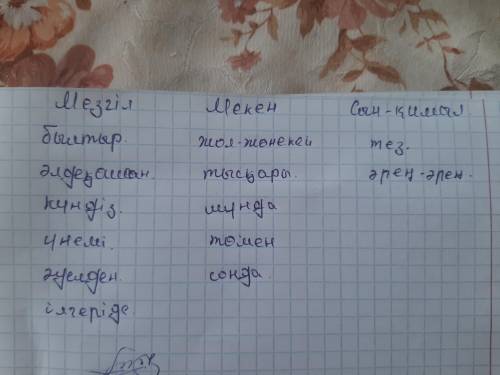 Мезгіл Мекен Сын-қимыл
былтыр. жол-жөнекей тез.
әлдеқашан. тысқары. әрең-әрең.
күндіз. мұнда
үнемі. төмен
әуелден. сонда.
ілгеріде